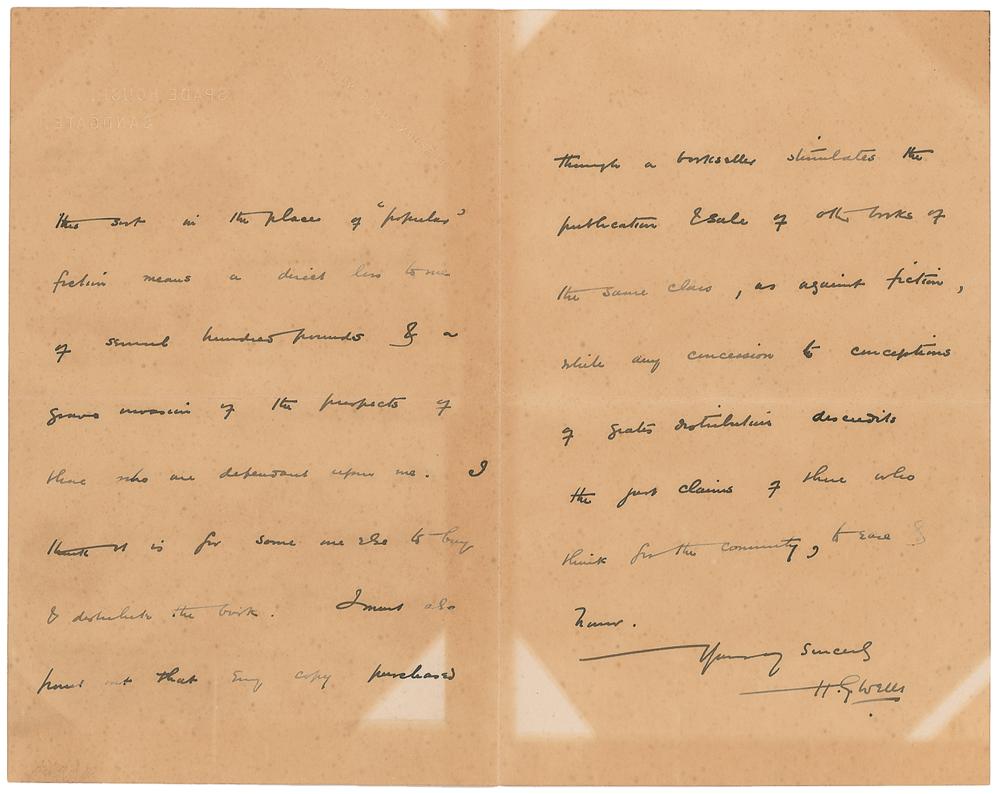 SPADE HOUSE,
SANDGATE.
this sort in the place of "popular"
fiction means a direct loss to me
of several hundred pounds & a
grave invasion of the prospects of
those who are dependant upon me. I
think it is for some one else to buy
& distribute the book. I must also
point out that every copy purchased
through a bookseller stimulates the
publication & sale of other books of
the same class, as against fiction,
while any concession to conceptions
of gratis distribution discredits
the just claims of those who
think for the community, to ease &
honour.
Yours very sincerely
H.G. Wells